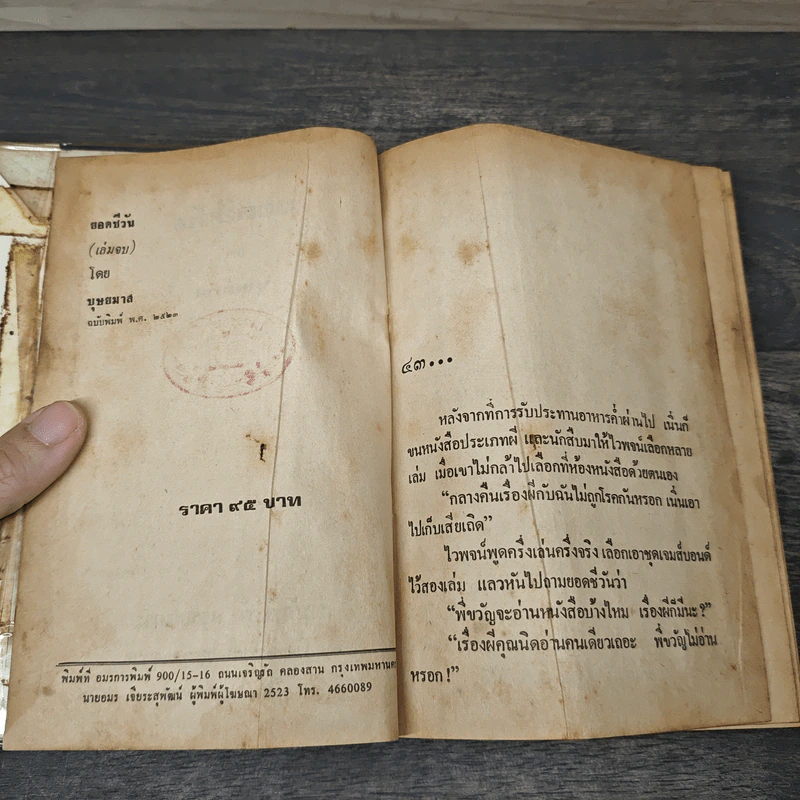 ยอดชีวัน
(เล่มจบ)
โดย
บุษยมาส
ฉบับพิมพ์ พ.ศ. ๒๕๒๓
ราคา ๙๕ บาท
พิมพ์ที่ อมรการพิมพ์ 900/15-16 ถนนเจริญรัถ คลองสาน กรุงเทพมหานคร
นายอมร เจียระสุพัฒน์ ผู้พิมพ์ผู้โฆษณา 2523 โทร. 4660089
๔๓...
หลังจากที่การรับประทานอาหารค่ำผ่านไป เนิ่นก็
ขนหนังสือประเภทผี และนักสืบมาให้ไวพจน์เลือกหลาย
เล่ม เมื่อเขาไม่กล้าไปเลือกที่ห้องหนังสือด้วยตนเอง
“กลางคืนเรื่องผีกับฉันไม่ถูกโรคกันหรอก เนิ่นเอา
ไปเก็บเสียเถิด”
ไวพจน์พูดครึ่งเล่นครึ่งจริง เลือกเอาชุดเจมส์บอนด์
ไว้สองเล่ม แลวหันไปถามยอดชีวันว่า
“พี่ขวัญจะอ่านหนังสือบ้างไหม เรื่องผีก็มีนะ?”
“เรื่องผีคุณนิดอ่านคนเดียวเถอะ พี่ขวัญไม่อ่าน
หรอก!”